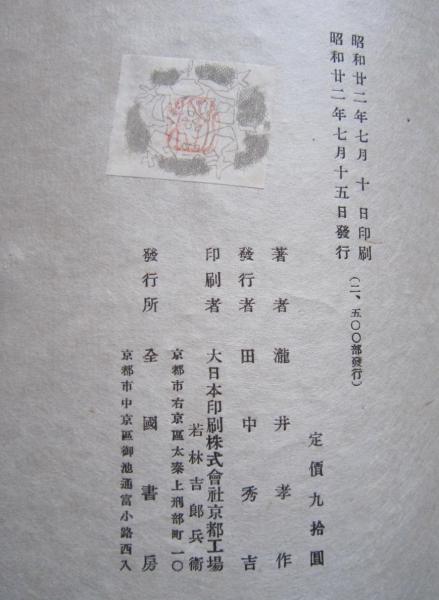 昭和廿二年七月 十 日印刷
昭和廿二年七月十五日發行
(二、五〇〇部發行)
定價九拾圓
著者 瀧井孝作
發行者 田中秀吉
印刷者 大日本印刷株式會社京都工場
若林吉郎兵衞
京都市右京區太秦上刑部町一〇
發行所 全國書房
京都市中京區御池通富小路西入